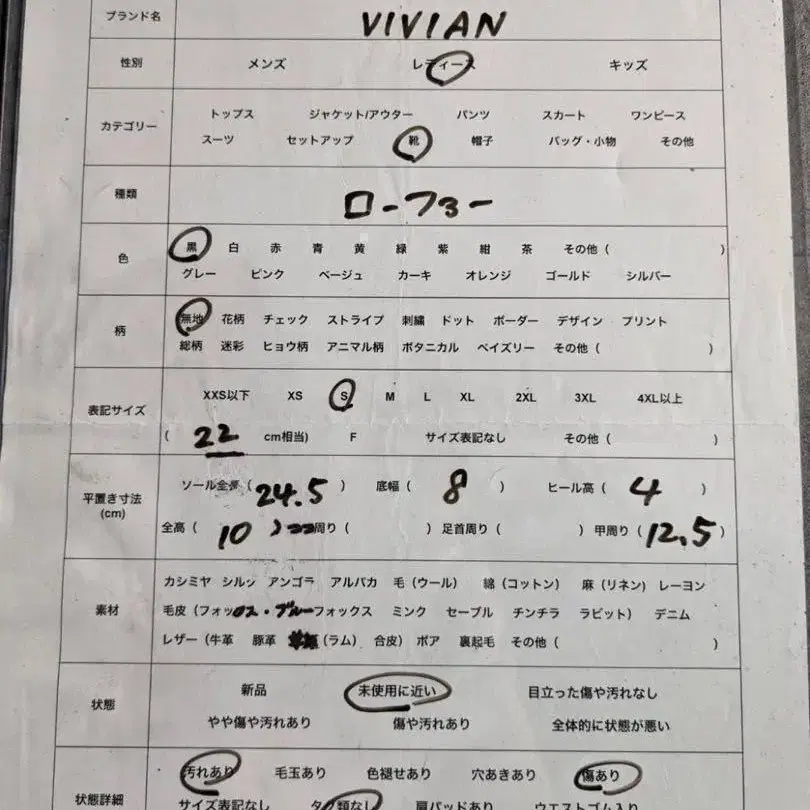 ブランド名 VIVIAN
性別 メンズ レディース キッズ
カテゴリー トップス ジャケット/アウター パンツ スカート ワンピース
スーツ セットアップ 靴 帽子 バッグ・小物 その他
種類 ローファー
色 黒 白 赤 青 黄 緑 紫 紺 茶 その他 ( )
グレー ピンク ベージュ カーキ オレンジ ゴールド シルバー
柄 無地 花柄 チェック ストライプ 刺繍 ドット ボーダー デザイン プリント
総柄 迷彩 ヒョウ柄 アニマル柄 ボタニカル ペイズリー その他 ( )
表記サイズ XXS以下 XS S M L XL 2XL 3XL 4XL以上
( 22 cm相当) F サイズ表記なし その他 ( )
平置き寸法 (cm) ソール全長 ( 24.5 ) 底幅 ( 8 ) ヒール高 ( 4 )
全高 ( 10 ) 周り ( ) 足首周り ( ) 甲周り ( 12.5 )
素材 カシミヤ シルク アンゴラ アルパカ 毛 (ウール) 綿 (コットン) 麻 (リネン) レーヨン
毛皮 (フォックス・ブルーフォックス ミンク セーブル チンチラ ラビット) デニム
レザー (牛革 豚革 (ラム) 合皮) ボア 裏起毛 その他 ( )
状態 新品 未使用に近い 目立った傷や汚れなし
やや傷や汚れあり 傷や汚れあり 全体的に状態が悪い
状態詳細 汚れあり 毛玉あり 色褪せあり 穴あきあり 傷あり
サイズ表記なし タグ類なし 肩パッドあり ウエストゴム入り